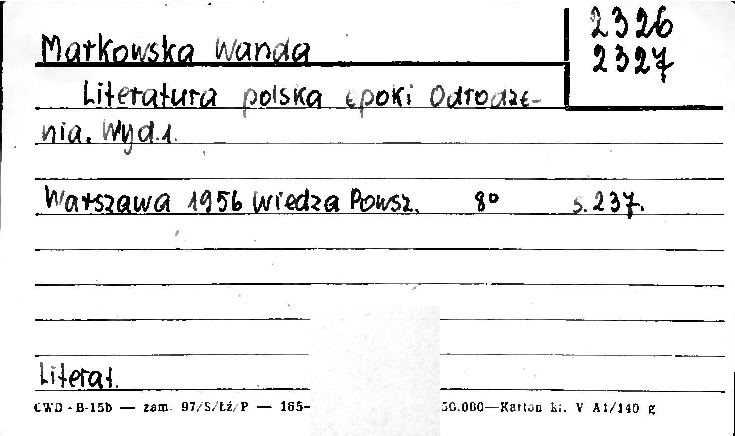 2326
2327
Markowska Wanda
Literatura polska epoki Odrodze-
nia. Wyd.1.
Warszawa 1956 Wiedza Powsz. 8° s.237.
Literat.
CWD - B-15b — zam. 97/S/Łź/P — 165- 50.000—Karton kl. V A1/140 g